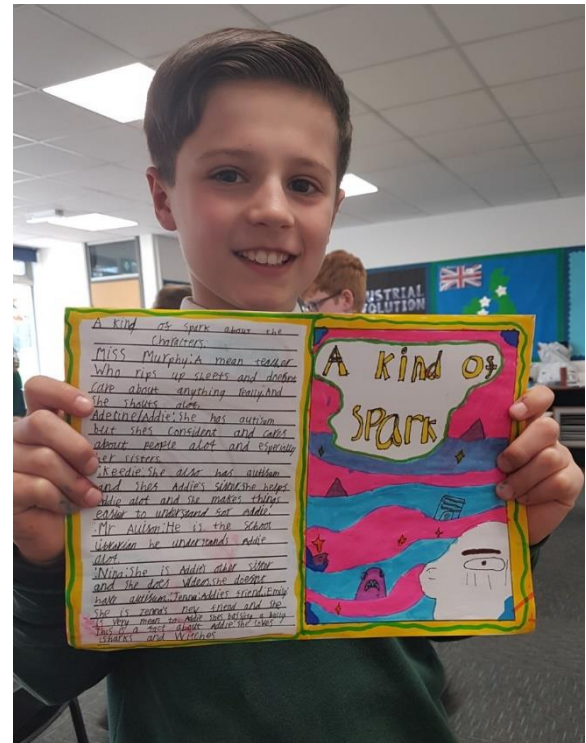 USTRIAL
OLUTION
A kind of spark about the
characters.
Miss Murphy:A mean teacher
who rips up sheets and doesnt
care about anything really.And
she shouts alot.
Adeline/Addie:She has autism
but shes confident and cares
about people alot and especially
her sisters.
:Keedie:She also has autism
and shes Addie's sister.she helps
addie alot and she makes things
easier to understand for Addie.
:Mr Allison:He is the school
librarian he understands Addie
alot.
:Nina:She is Addie's other sister
and she does videos.she doesnt
have autism.:Jenna:Addies friend.:Emily:
she is Jenna's new friend and she
is very mean to Addie shes basicly a bully
This is a fact about Addie:She loves
sharks and Witches
A kind of
spark